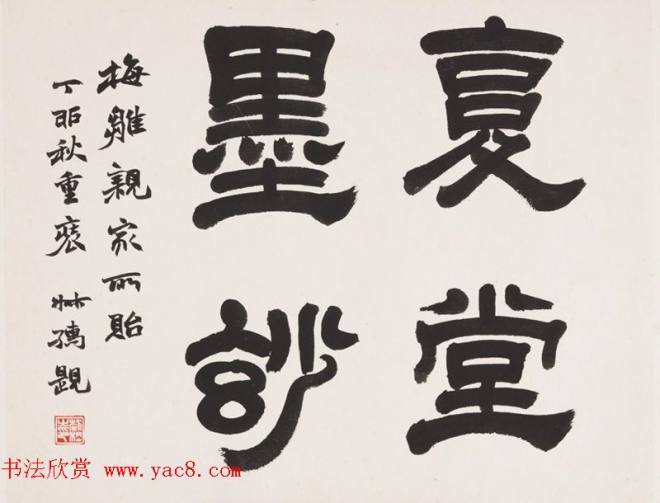 复堂
墨玅
梅雛親家所貽
丁卯秋重裝 叔孺題
书法欣赏 www.yac8.com